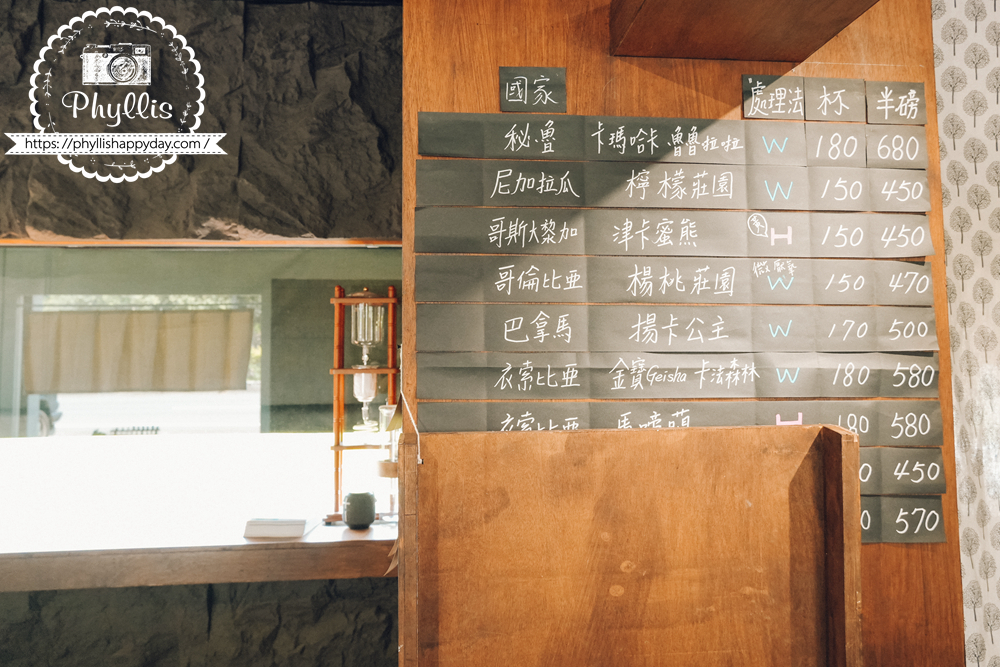 Phyllis
https://phyllishappyday.com/
國家 處理法 杯 半磅
秘魯 卡瑪哈卡 魯魯拉拉 W 180 680
尼加拉瓜 檸檬莊園 W 150 450
哥斯大黎加 津卡蜜熊 H 150 450
哥倫比亞 楊桃莊園 W 150 470
巴拿馬 揚卡公主 W 170 500
衣索比亞 金寶Geisha 卡法森林 W 180 580
衣索比亞 H 180 580
0 450
0 570